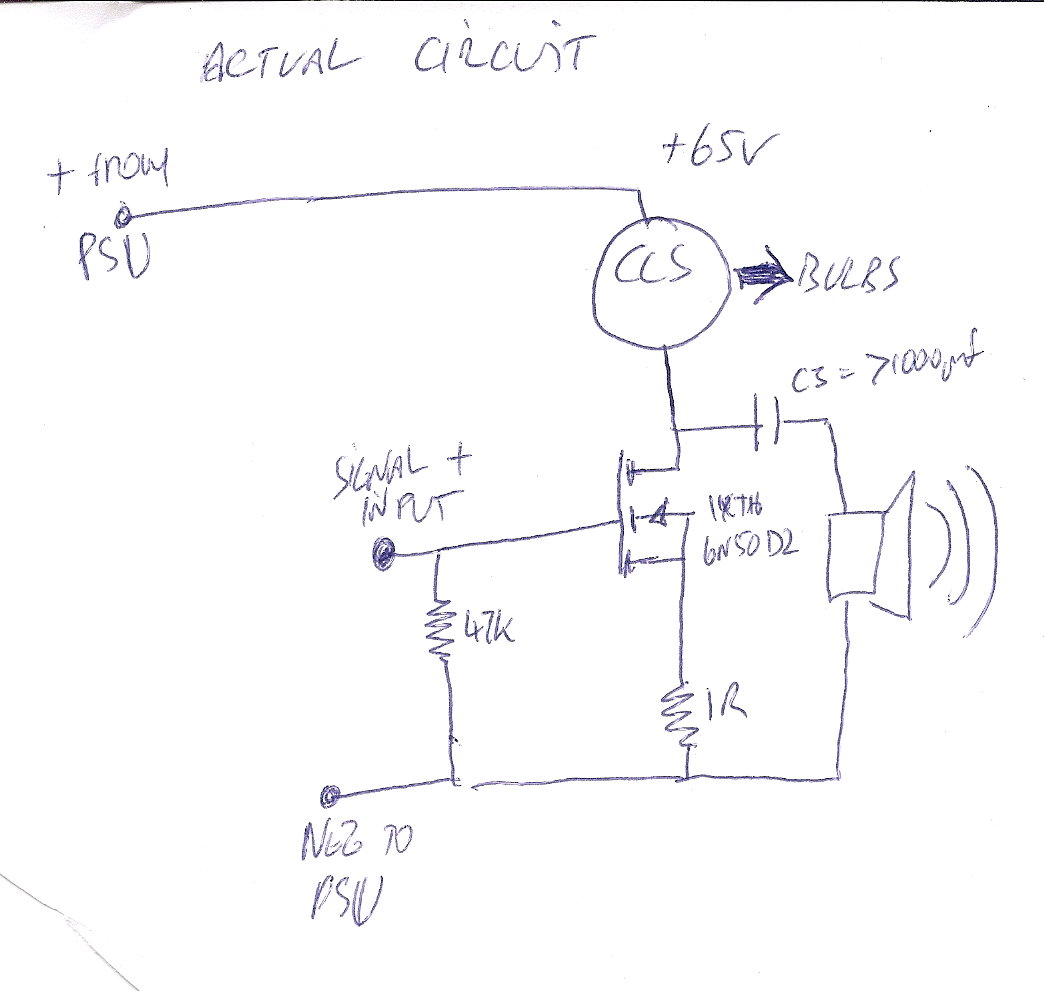 ACTUAL CIRCUIT
+65V
+ from
PSU
CCS
BULBS
C3 = >1000µf
SIGNAL +
INPUT
6N50D2
47K
1R
NEG TO
PSU